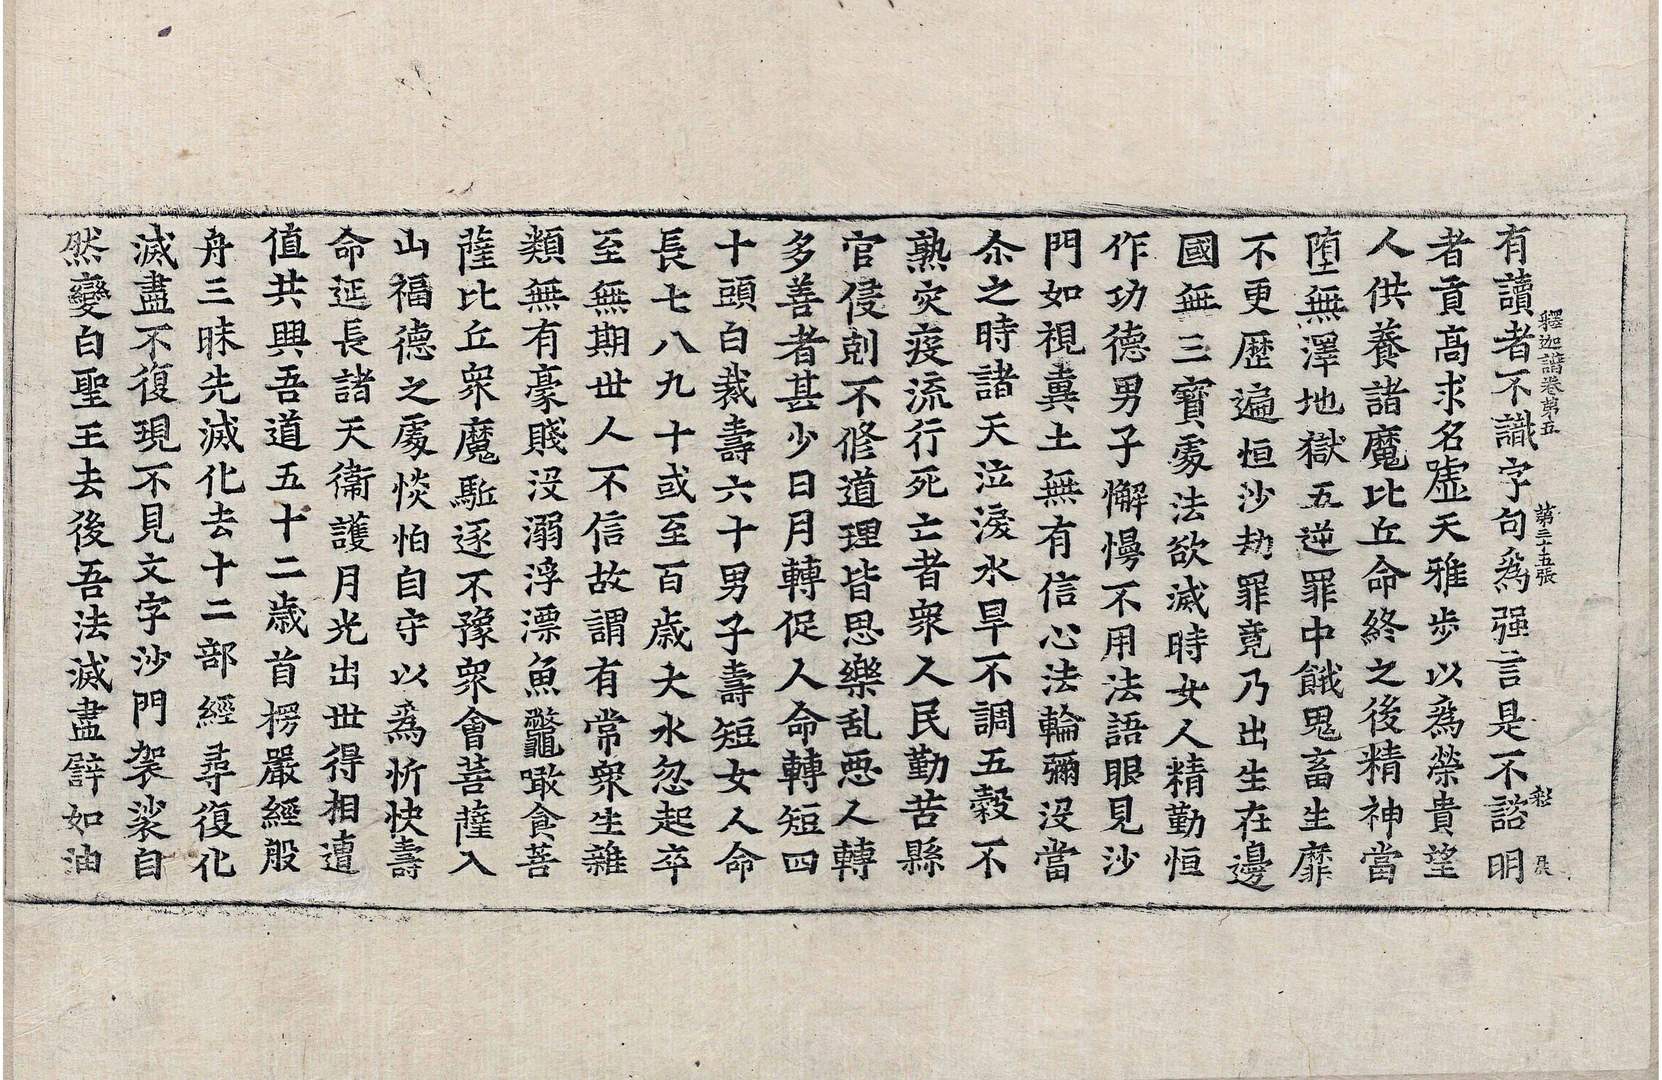 釋迦譜卷第五 第三十五張 彩
有讀者不識字句爲强言是不諮明
者貢高求名虛天雅步以爲榮貴望
人供養諸魔比丘命終之後精神當
墮無澤地獄五逆罪中餓鬼畜生靡
不更歷遍恒沙劫罪竟乃出生在邊
國無三寶處法欲滅時女人精勤恒
作功德男子懈慢不用法語眼見沙
門如視糞土無有信心法輪彌沒當
尒之時諸天泣淚水旱不調五穀不
熟灾疫流行死亡者衆人民勤苦縣
官侵剋不修道理皆思樂乱惡人轉
多善者甚少日月轉促人命轉短四
十頭白裁壽六十男子壽短女人命
長七八九十或至百歲大水忽起卒
至無期世人不信故謂有常衆生雜
類無有豪賤沒溺浮漂魚鼈噉食菩
薩比丘衆魔駈逐不豫衆會菩薩入
山福德之處惔怕自守以爲忻快壽
命延長諸天衞護月光出世得相遭
值共興吾道五十二歲首楞嚴經般
舟三昧先滅化去十二部經尋復化
滅盡不復現不見文字沙門袈裟自
然變白聖王去後吾法滅盡譬如油